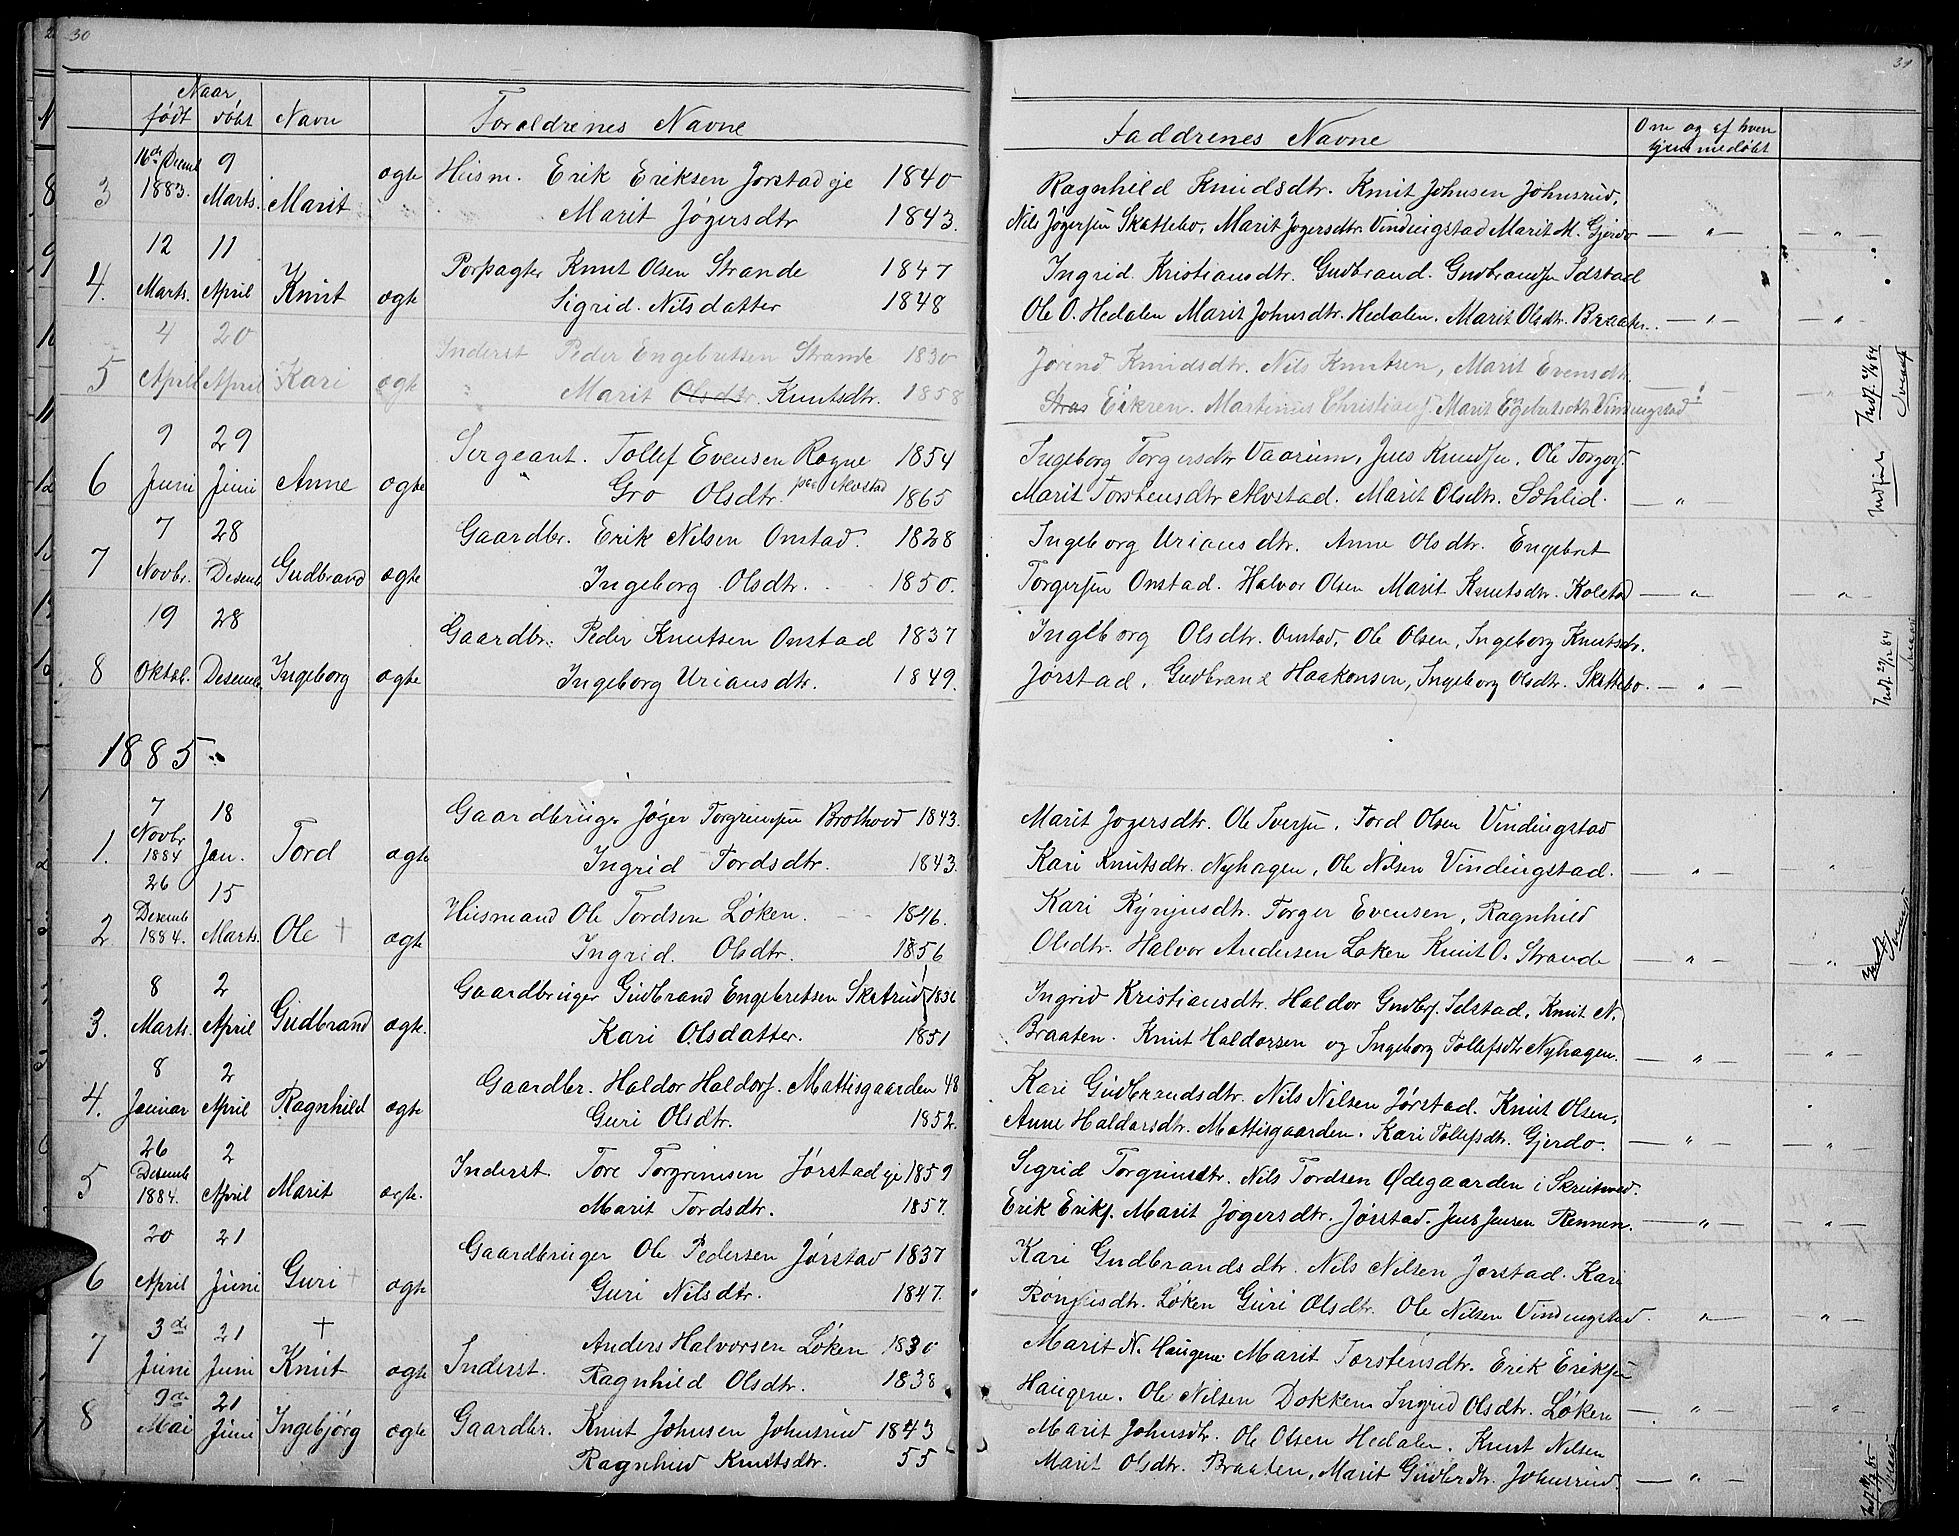 30
Naar
født døbt Navn Foraldrenes Navne
3 16de 1883. 9 Marts. Marit ægte Husm. Erik Eriksen Jørstad eje 1840
Marit Jøgersdtr 1843.
4. 12 Marts. 11 April Knut ægte Knut Olsen Strande 1847
Sigrid Nilsdatter 1848
5 4 April 20 April Kari ægte Inderst Peder Engebretsen Strande 1830
Marit Olsdtr. Knutsdtr. 1858
6 9 Juni 29 Juni Anne ægte Sergeant. Tollef Evensen Rogne 1854
Gro Olsdtr. paa Alvstad 1865
7 7 Novbr. 28 Desemb. Gudbrand ægte Gaardbr. Erik Nilsen Onstad. 1828
Ingeborg Olsdtr. 1850.
8 19 Oktbr. 28 Desemb. Ingeborg ægte Gaardbr. Peder Knutsen Onstad 1837
Ingeborg Uriansdtr. 1849.
1885.
1. 7 Novbr 1884 18 Jan. Tord ægte Gaardbruger Jøger Torgrimsen 1843.
Ingrid Tordsdtr. 1843.
2. 26 Desemb 1884. 15 Marts. Ole + ægte Husmand Ole Tordsen Løken. 1846.
Ingrid Olsdtr. 1856
3. 8 Marts. 2 April Gudbrand ægte. Gaardbruger Gudbrand Engebretsen Skatrud
Kari Olsdatter. 1851
4. 8 Januar 2 April Ragnhild ægte Gaardbr. Haldor Haldors. Mattisgaarden 48
Guri Olsdtr. 1852.
5 26 Desemb 1884. 2 April Marit ægte. Inderst. Tore Torgrimsen Jørstad eje 1859
Marit Tordsdtr. 1857.
6 20 April 21 Juni Guri + ægte Gaardbruger Ole Pedersen Jørstad 1837
Guri Nilsdtr. 1847.
7 3de Juni 21 Juni + Knut ægte Inderst. Anders Halvorsen Løken 1830
Ragnhild Olsdtr. 1838
8 9de Mai 21 Juni Ingebjørg ægte Gaardbr. Knut Johnsen Johnsrud 1843
Ragnhild Knutsdtr. 55
31
Faddrenes Navne Om og af hvem hjemmedøbt
Ragnhild Knudsdtr. Knut Johnsen Johnsrud,
Nils Jøgersen Skattebo, Marit Jøgersdtr Vindingstad Marit M. Gjerdo — " — — " —
Ingrid Kristiansdtr. Gudbrand Gudbrandsen Idstad
Ole O. Hedalen Marit Johnsdtr. Hedalen. Marit Olsdtr. Braaten. — " — — " —
Jørend Knudsdtr. Nils Knutsen, Marit Evensdtr.
Eikren. Martinus Christians. Marit Engebretsdtr. Vindingstad
Ingeborg Torgersdtr Vaarum, Jens Knudsen, Ole Torgers.
Marit Torstensdtr Alvstad. Marit Olsdtr. Sæhlid. — "
Ingeborg Uriansdtr. Anne Olsdtr. Engebret
Torgersen Onstad. Halvor Olsen Marit Knutsdtr. Kolstad — " — — " —
Ingeborg Olsdtr. Onstad, Ole Olsen, Ingeborg Knutsdtr.
Jørstad, Gudbrand Haakonsen, Ingeborg Olsdtr. Skattebo. — " —
Marit Jøgersdtr. Ole Iversen, Tord Olsen Vindingstad
Kari Knutsdtr. Nyhagen, Ole Nilsen Vindingstad. — " — — " —
Kari Torger Evensen, Ragnhild
Olsdtr. Halvor Andersen Løken Knut O. Strande — " — — " —
Ingrid Kristiansdtr. Haldor Gudbrs. Idstad, Knut N.
Braaten. Knut Haldorsen og Ingeborg Tollefsdtr Nyhagen. — " — — " —
Kari Gudbrandsdtr. Nils Nilsen Jørstad. Knut Olsen,
Anne Haldorsdtr. Mattisgaarden. Kari Tollefsdtr. Gjerdo. — " — — " —
Sigrid Torgrimsdtr. Nils Tordsen Ødegaarden i
Erik Eriks. Marit Jøgersdtr. Jørstad. Jens Jensen Rennen. — " — — " —
Kari Gudbrandsdtr. Nils Nilsen Jørstad. Kari
Løken Guri Olsdtr. Ole Nilsen Vindingstad. — " — — " —
Marit N. Haugene Marit Torstensdtr. Erik Eriksen
Haugene. Ole Nilsen Dokken Ingrid Olsdtr. Løken — " — — " —
Marit Johnsdtr. Ole Olsen Hedalen. Knut Nilsen
Marit Olsdtr. Braaten, Marit Gudbrdtr. Johnsrud. — " —